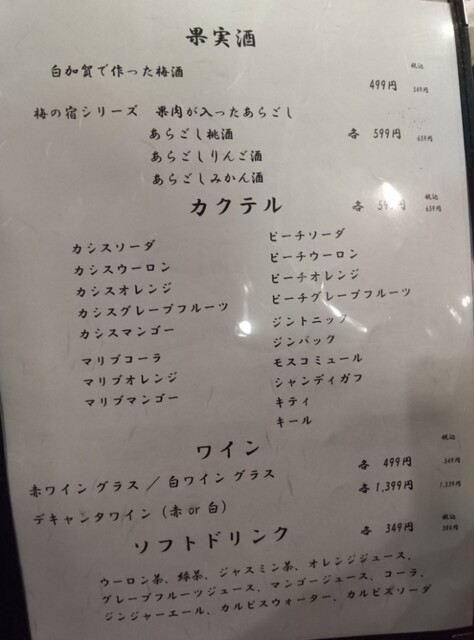 果実酒
税込
白加賀で作った梅酒 499円 549円
梅の宿シリーズ 果肉が入ったあらごし
税込
あらごし桃酒 各 599円 659円
あらごしりんご酒
あらごしみかん酒
税込
カクテル 各 599円 659円
カシスソーダ
カシスウーロン
カシスオレンジ
カシスグレープフルーツ
カシスマンゴー
マリブコーラ
マリブオレンジ
マリブマンゴー
ピーチソーダ
ピーチウーロン
ピーチオレンジ
ピーチグレープフルーツ
ジントニック
ジンバック
モスコミュール
シャンディガフ
キティ
キール
ワイン
税込
赤ワイン グラス / 白ワイン グラス 各 499円 549円
デキャンタワイン (赤 or 白) 各 1,399円 1,539円
税込
ソフトドリンク 各 349円
ウーロン茶、緑茶、ジャスミン茶、オレンジジュース、
グレープフルーツジュース、マンゴージュース、コーラ、
ジンジャーエール、カルピスウォーター、カルピスソーダ